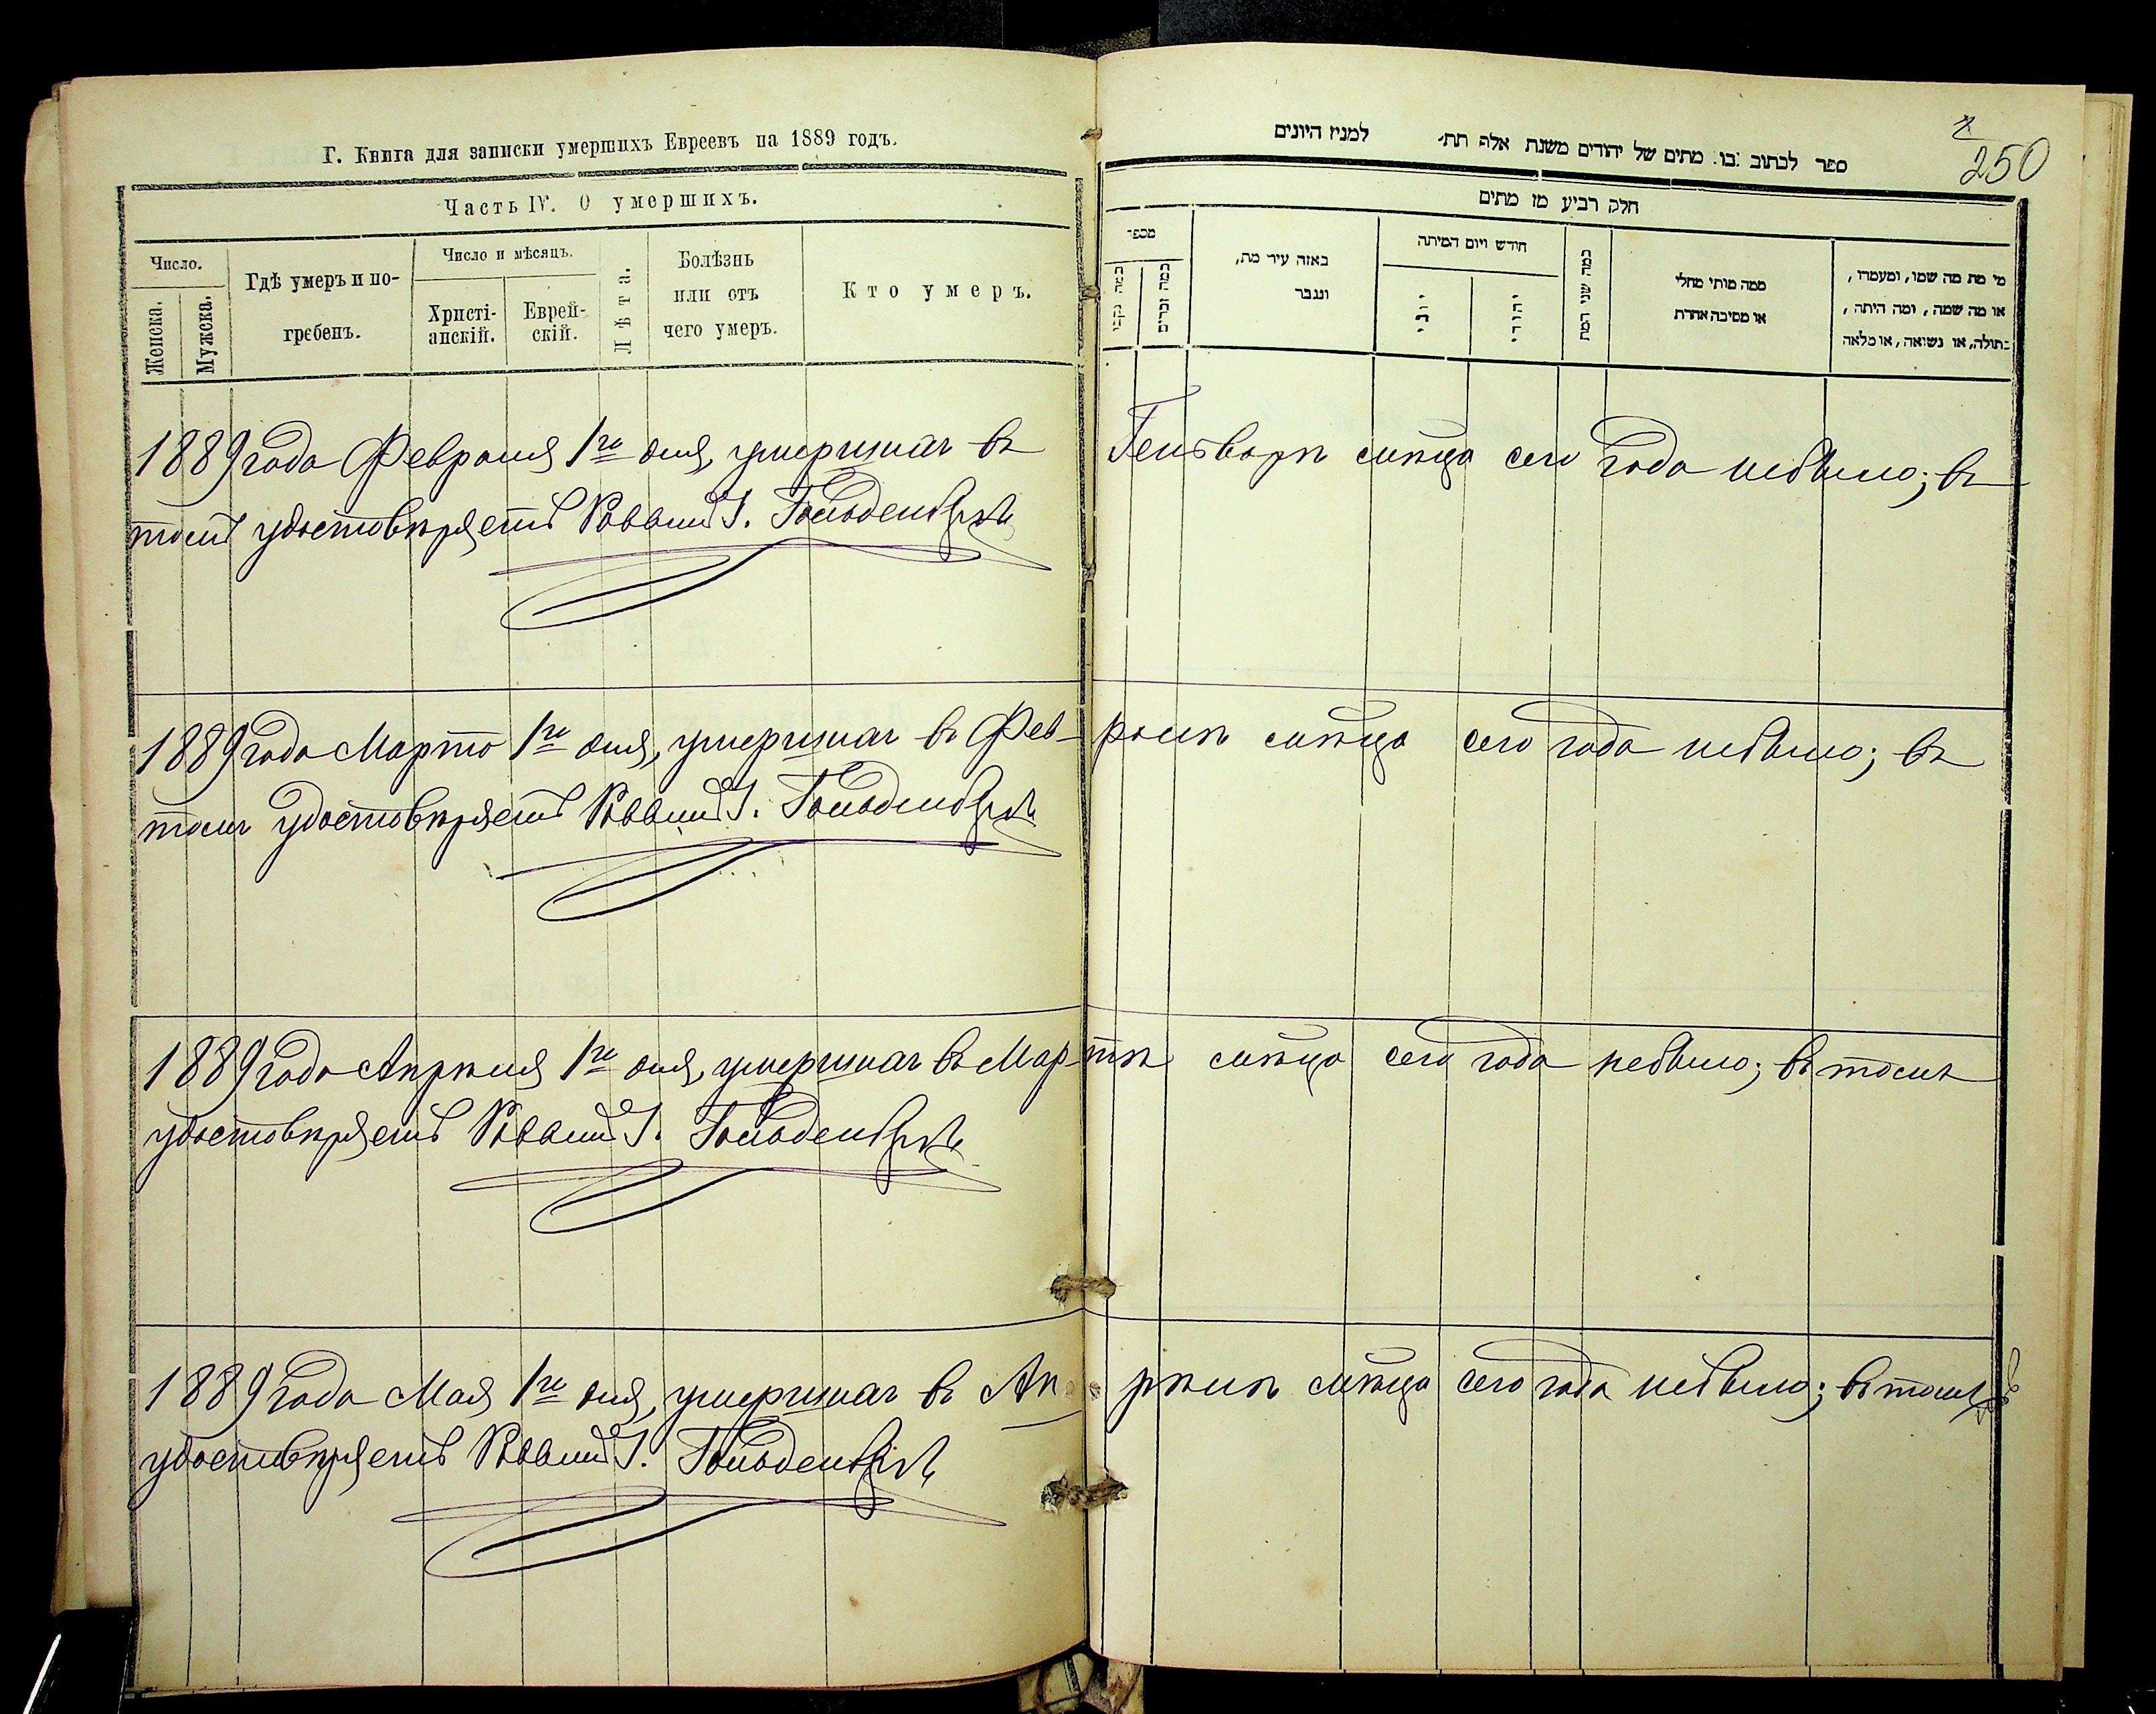 Г. Книга для записки умершихъ Евреевъ на 1889 годъ.
Часть IV. О умершихъ.
Число.
Женска.
Мужска.
Гдѣ умеръ и по-
гребенъ.
Число и мѣсяцъ.
Христі-
анскій.
Еврей-
скій.
Лѣта.
Болѣзнь
или отъ
чего умеръ.
Кто умеръ.
250
ספר לכתוב בו מתים של יהודים משנת אלף תת׳ למנין היונים
חלק רביע מן מתים
מספר
כמה נקבו׳
כמה זכרים
באזה עיר מת,
ונגבר
חודש ויום המיתה
יוני
יהודי
כמה שני המת
ממה מותי מחלי
או מסיבה אחרת
מי מת מה שמו, ומעמדו,
או מה שמה, ומה היתה,
בתולה, או נשואה, או מלאה
1889 года Февраля 1го дня, умершихъ въ Генварѣ мѣцѣ сего года небыло; въ
томъ удостовѣряетъ Раввинъ І. Гольденбергъ
1889 года Марта 1го дня, умершихъ въ Фев-ралѣ мѣцѣ сего года небыло; въ
томъ удостовѣряетъ Раввинъ І. Гольденбергъ
1889 года Апрѣля 1го дня, умершихъ въ Мар-тѣ мѣцѣ сего года небыло; въ томъ
удостовѣряетъ Раввинъ І. Гольденбергъ
1889 года Мая 1го дня, умершихъ въ Ап-рѣлѣ мѣцѣ сего года небыло; въ томъ
удостовѣряетъ Раввинъ І. Гольденбергъ